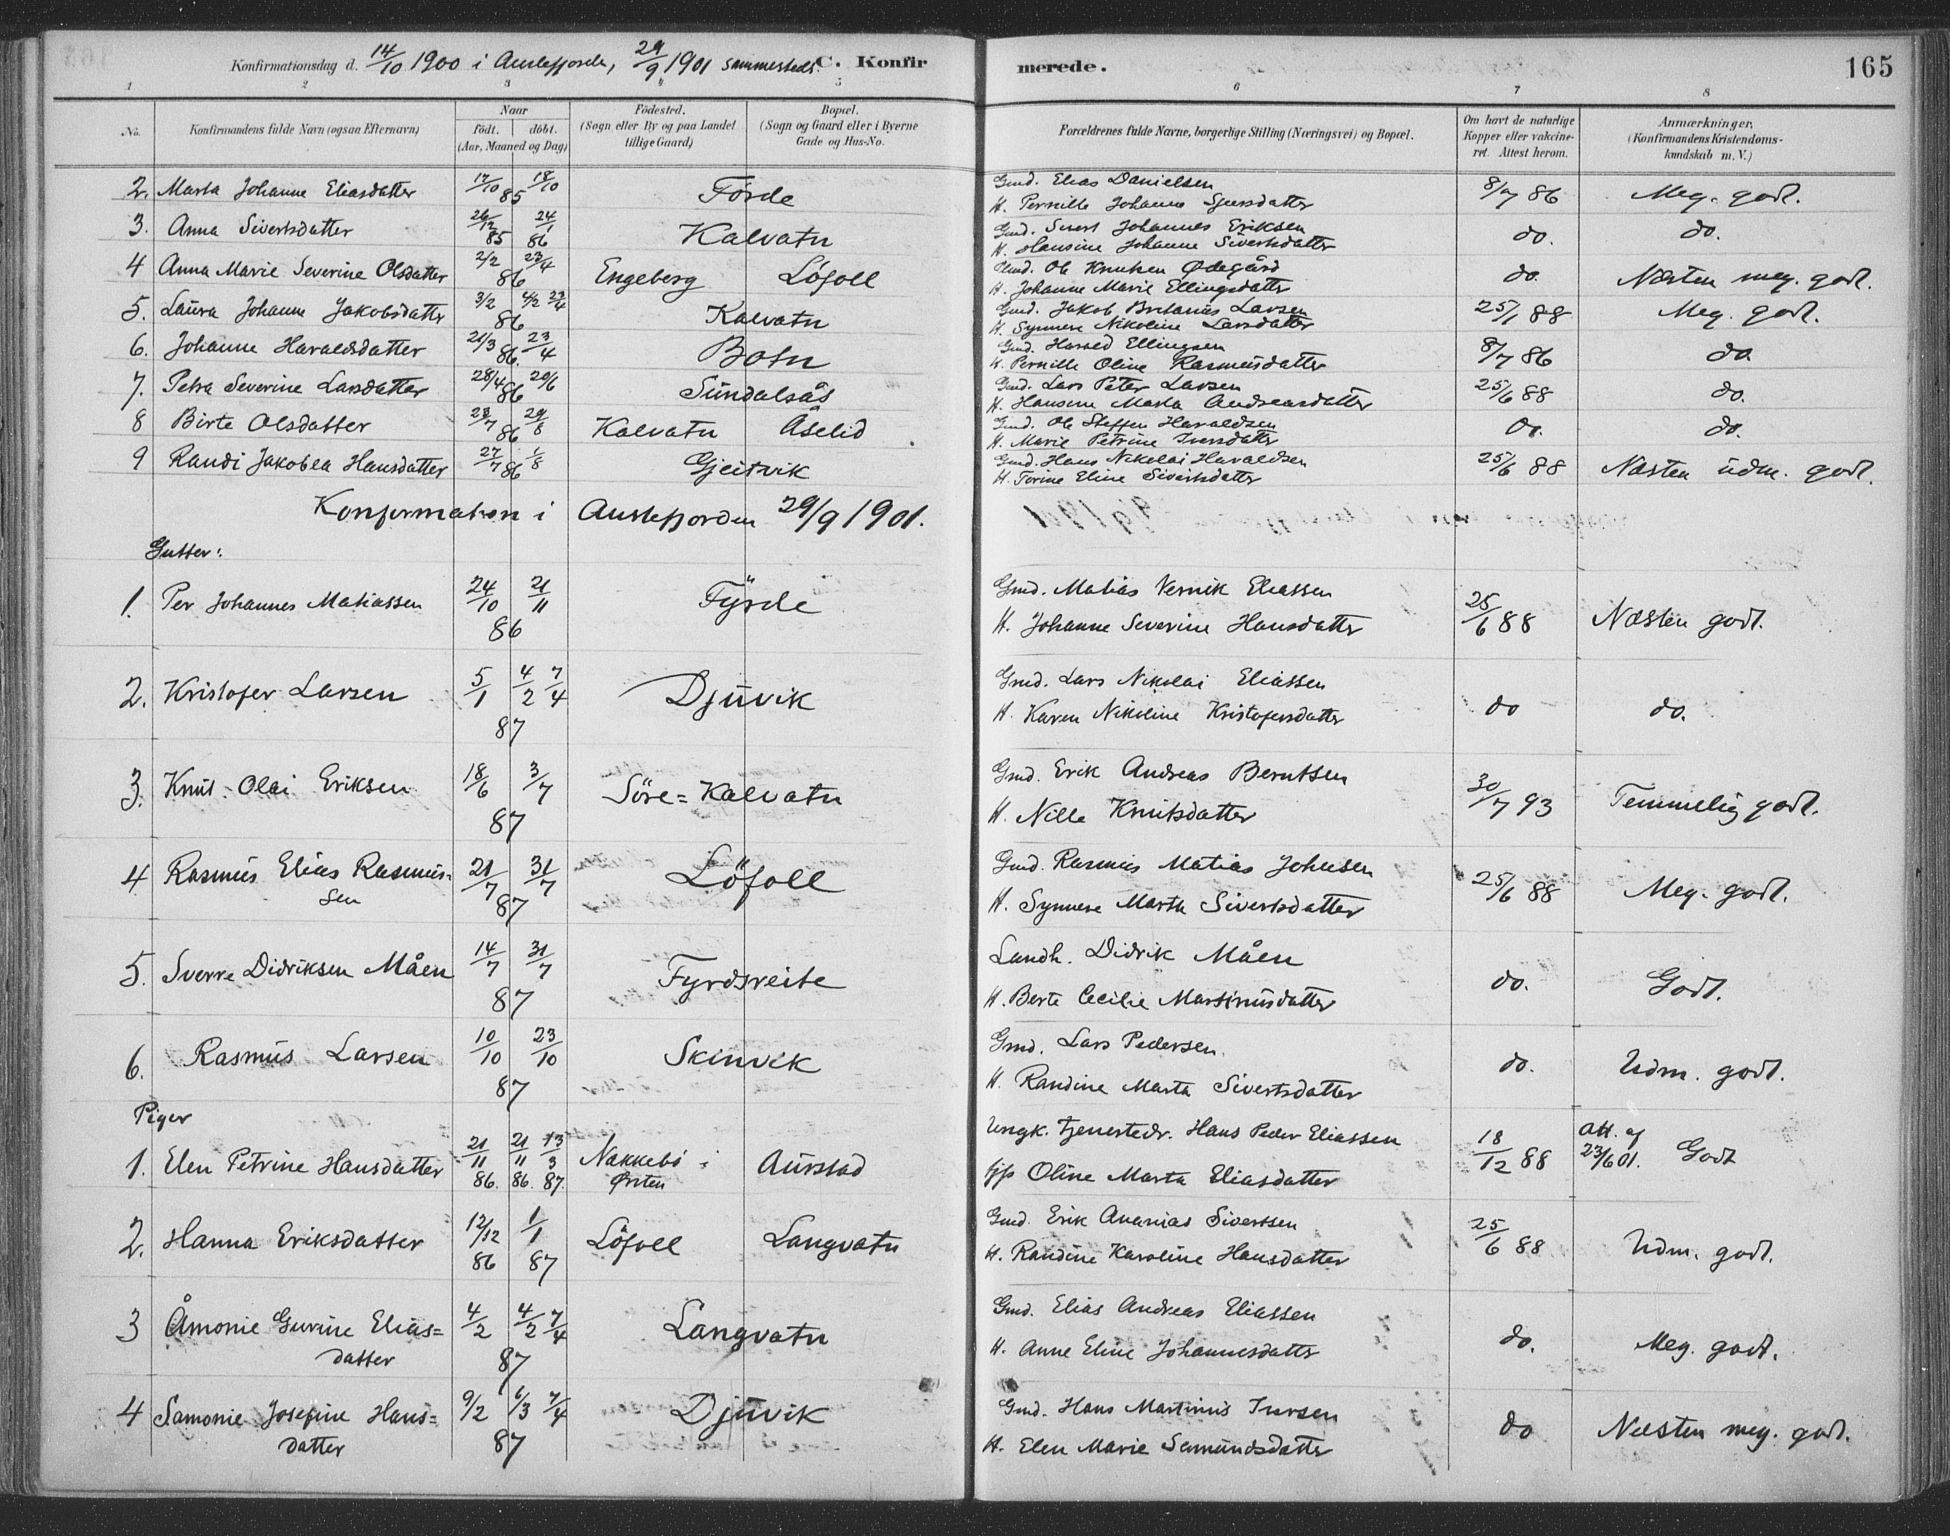 Konfirmationsdag d. 14/10 1900 i Austefjorden, 29/9 1901 sammesteds. C. Konfirmerede. 165
1 2 3 4 5 6 7 8
No. Konfirmandens fulde Navn (ogsaa Efternavn) Naar født. døbt. (Aar, Maaned og Dag) Fødested. (Sogn eller By og paa Landet tillige Gaard) Bopæl. (Sogn og Gaard eller i Byerne Gade og Hus-No. Forældrenes fulde Navne, borgerlige Stilling (Næringsvei) og Bopæl. Om havt de naturlige Kopper eller vakcineret. Attest herom. Anmærkninger, (Konfirmandens Kristendomskundskab m. V.)
2. Marta Johanne Eliasdatter 17/10 18/10 85 Förde Gmd. Elias Danielsen
H. Pernille Johanne Sjursdatter 8/7 86 Meg. godt.
3. Anna Sivertsdatter 26/12 85 24/1 86 Kalvatn Gmd. Sivert Johannes Eriksen
H. Hansine Johanne Sivertsdatter do. do.
4 Anna Marie Severine Olsdatter 2/2 23/4 86 Engeberg Löfoll Gmd. Ole Knutsen Ødegård
H. Johanne Marie Ellingsdatter do. Næsten meg. godt.
5. Laura Johanne Jakobsdatter 3/2 4/2 23/4 86 Kalvatn Gmd. Jakob Larsen
H. Synnere Nikoline Larsdatter 25/1 88 Meg. godt.
6. Johanne Haraldsdatter 21/3 23/4 86. Botn Gmd. Harald Ellingsen
H. Pernille Oline Rasmusdatter 8/7 86 do.
7. Petra Severine Larsdatter 28/4 20/6 86 Sundalsås Gmd. Lars Peter Larsen
H. Hansine Marta Andreasdatter 25/6 88 do.
8 Birte Olsdatter 23/7 29/8 86 Kalvatn Åselid. Gmd. Ole Steffen Haraldsen
H. Marie Petrine Iversdatter do. do.
9 Randi Jakobea Hansdatter 27/7 1/8 86 Gjeitvik Gmd. Hans Nikolai Haraldsen
H. Torine Eline Sivertsdatter 25/6 88 Næsten udm. godt.
Konfirmation i Austefjorden 29/9 1901.
Gutter:
1. Per Johannes Matiassen 24/10 21/11 86 Fyrde Gmd. Matias Vernik Eliassen
H. Johanne Severine Hansdatter 25/6 88 Næsten godt.
2. Kristofer Larsen 5/1 4/2 7/4 87 Djuvik Gmd. Lars Nikolai Eliassen
H. Karen Nikoline Kristofersdatter do do.
3. Knut Olai Eriksen 18/6 3/7 87 Söre=Kalvatn Gmd. Erik Andreas Berntsen
H. Nille Knutsdatter 30/7 93 Temmelig godt.
4 Rasmus Elias Rasmus-
sen 21/7 31/7 87 Löfoll Gmd. Rasmus Matias Johnsen
H. Synnere Marta Sivertsdatter 25/6 88 Meg. godt.
5. Sverre Didriksen Måen 14/7 31/7 87 Fyrdsreite Landh. Didrik Måen
H. Berte Cecilie Martinusdatter do. Godt.
6. Rasmus Larsen 10/10 23/10 87 Skinvik Gmd. Lars Pedersen.
H. Randine Marta Sivertsdatter do. Udm. godt.
Piger
1. Elen Petrine Hansdatter 21/11 86. 21/11 86. 13/3 87. Nakkebö i Örsten Aurstad Ungk. tjenestedr. Hans Peder Eliassen
Oline Marta Eliasdatter 18/12 88 Att. af 23/6 01. Godt
2. Hanna Eriksdatter 12/12 86 1/1 87 Löfoll Langvatn Gmd. Erik Ananias Sivertsen
H. Randine Karoline Hansdatter 25/6 88 Udm. godt.
3 Åmonie Gurine Elias=
datter 4/2 4/2 7/4 87 Langvatn Gmd. Elias Andreas Eliassen
H. Anne Eline Johannesdatter do. Meg. godt.
4 Samonie Josefine Hans=
datter 9/2 6/3 7/4 87 Djuvik Gmd. Hans Martinus Iversen
H. Elen Marie Samundsdatter do Næsten meg. godt.